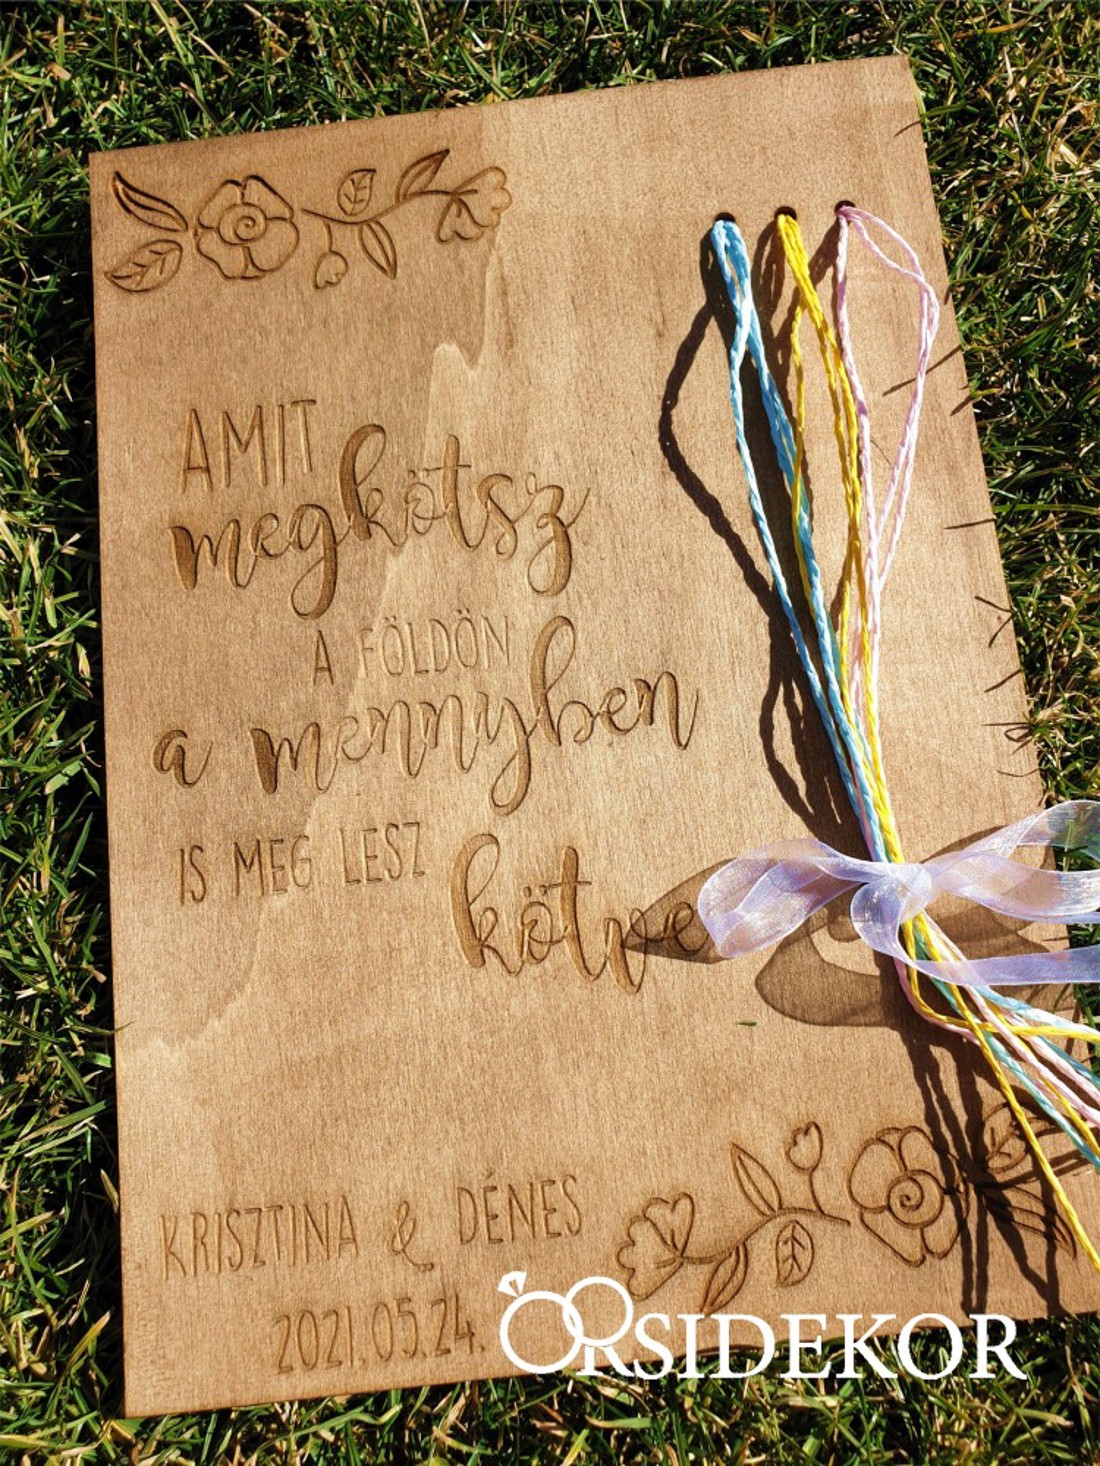 AMIT
megkötsz
A FÖLDÖN
a mennyben
IS MEG LESZ
kötve
KRISZTINA & DÉNES
2021.05.24.
ORSIDEKOR